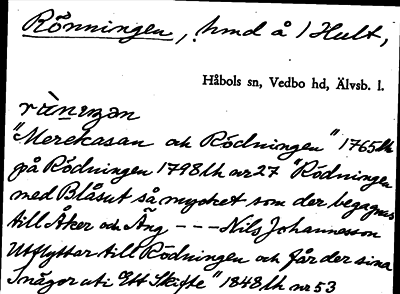 Rönningen, hmd å 1 Hult,
Håbols sn, Vedbo hd, Älvsb. l.
"Merekasan och Rödningen" 1765 lh
på Rödningen 1798 lh nr 27 "Rödningen
med Blåsut så mycket som der begagnas
till Åker och Äng --- Nils Johannesson
Utflyttar till Rödningen och får der sina
ägor uti Ett Skifte" 1848 lh nr 53